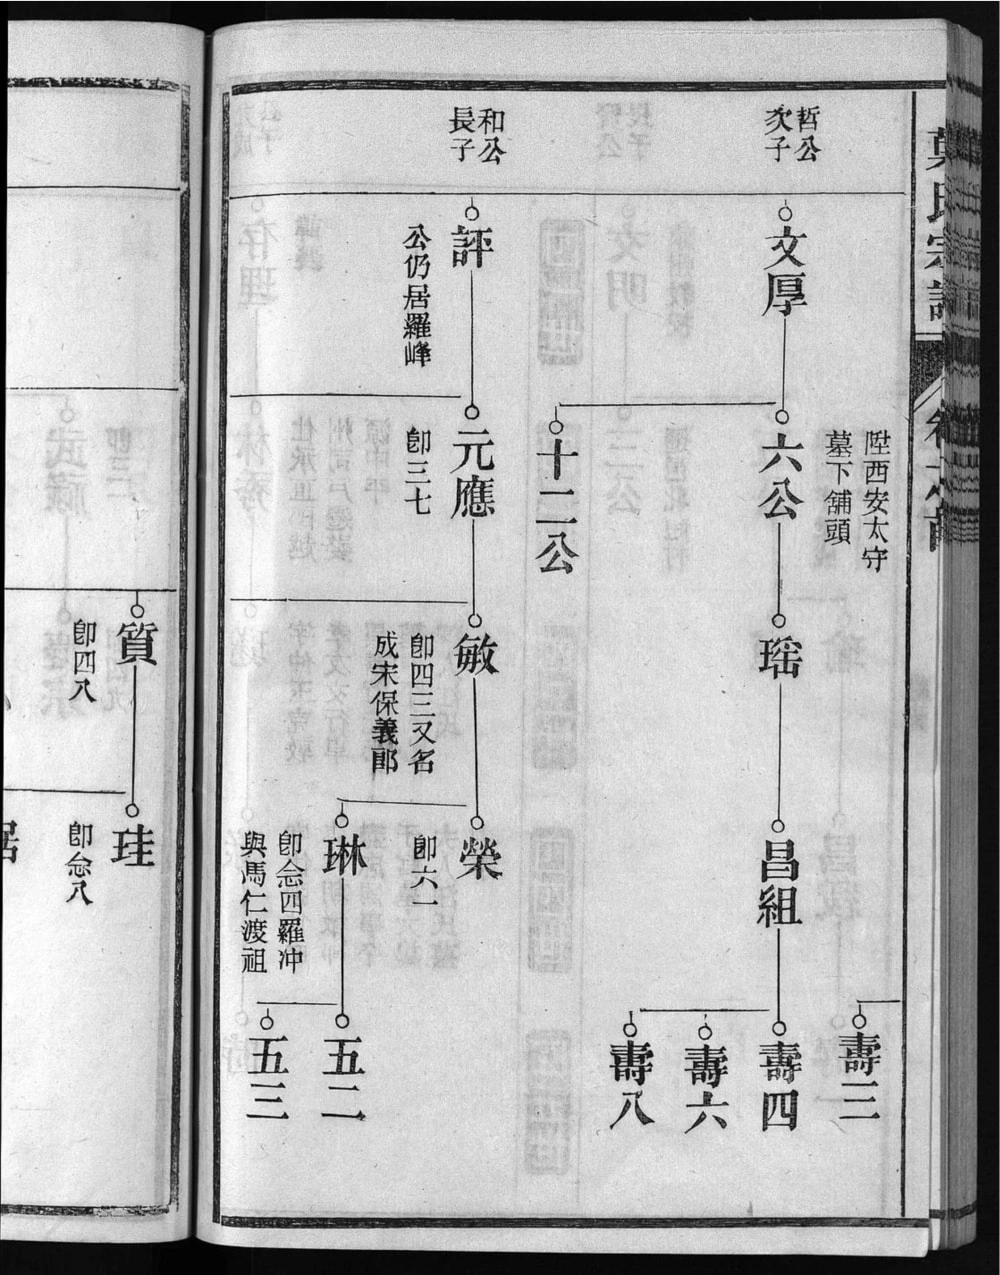 氏宗譜
哲公
次子
文厚
六公
陞西安太守
墓下舖頭
瑶
昌組
壽二
壽四
壽六
壽八
十二公
和公
長子
評
公仍居羅峰
元應
卽三七
敏
卽四三又名
成宋保義郎
榮
卽六一
琳
卽念四羅冲
與馬仁渡祖
五二
五三
質
卽四八
珪
卽念八